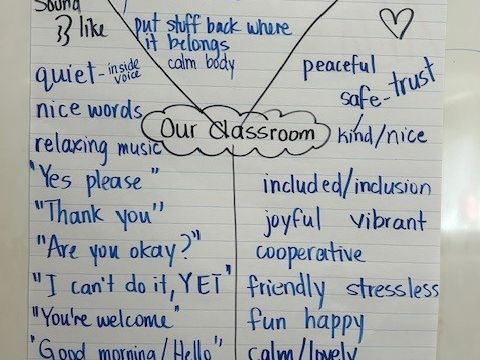 Sound
like
put stuff back where
it belongs
calm body
quiet - inside voice
nice words
relaxing music
"Yes please"
"Thank you"
"Are you okay?"
"I can't do it, YET"
"You're welcome"
"Good morning/Hello"
Our Classroom
peaceful
safe - trust
kind/nice
included/inclusion
joyful vibrant
cooperative
friendly stressless
fun happy
calm/lovely